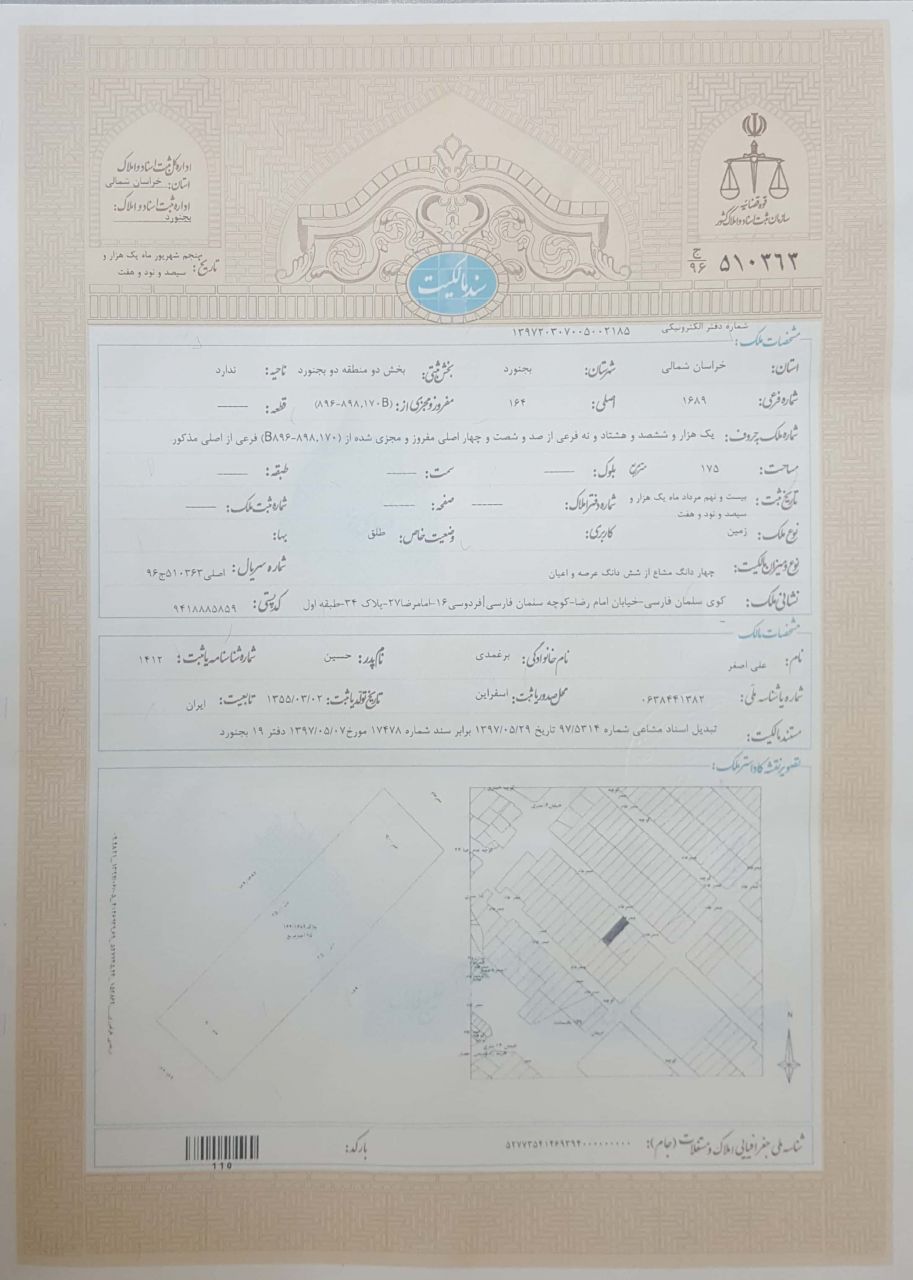 قوه قضائیه
سازمان ثبت اسناد و املاک کشور
ج ۹۶ ۵۱۰۳۶۳
اداره کل ثبت اسناد و املاک
استان: خراسان شمالی
اداره ثبت اسناد و املاک:
بجنورد
تاریخ: پنجم شهریور ماه یک هزار و سیصد و نود و هفت
سند مالکیت
شماره دفتر الکترونیکی ۱۳۹۷۲۰۳۰۷۰۰۵۰۰۲۱۸۵
مشخصات ملک:
استان: خراسان شمالی شهرستان: بجنورد بخش ثبتی: بخش دو منطقه دو بجنورد ناحیه: ندارد
شماره فرعی: ۱۶۸۹ اصلی: ۱۶۴ مفروز و مجزی از: (۸۹۶-۸۹۸,۱۷۰B) قطعه: ------
شماره ملک به حروف: یک هزار و ششصد و هشتاد و نه فرعی از صد و شصت و چهار اصلی مفروز و مجزی شده از (B۸۹۶-۸۹۸,۱۷۰) فرعی از اصلی مذکور
مساحت: ۱۷۵ متر مربع بلوک: ------ سمت: ------ طبقه: ------
تاریخ ثبت: بیست و نهم مرداد ماه یک هزار و سیصد و نود و هفت شماره دفتر املاک: ------ صفحه: ------ شماره ثبت ملک: ------
نوع ملک: زمین کاربری: وضعیت خاص: طلق بهاء:
نوع و میزان مالکیت: چهار دانگ مشاع از شش دانگ عرصه و اعیان شماره سریال: اصلی۵۱۰۳۶۳ج۹۶
نشانی ملک: کوی سلمان فارسی-خیابان امام رضا-کوچه سلمان فارسی|فردوسی۱۶-امامرضا۲۷-پلاک ۳۴-طبقه اول کد پستی: ۹۴۱۸۸۸۵۸۵۹
مشخصات مالک
نام: علی اصغر نام خانوادگی: برغمدی نام پدر: حسین شماره شناسنامه یا ثبت: ۱۴۱۲
شماره یا شناسه ملی: ۰۶۳۸۴۴۱۳۸۲ محل صدور یا ثبت: اسفراین تاریخ تولد یا ثبت: ۱۳۵۵/۰۳/۰۲ تابعیت: ایران
مستند مالکیت: تبدیل اسناد مشاعی شماره ۹۷/۵۳۱۴ تاریخ ۱۳۹۷/۰۵/۲۹ برابر سند شماره ۱۷۴۷۸ مورخ ۱۳۹۷/۰۵/۰۷ دفتر ۱۹ بجنورد
تصویر نقشه کاداستر ملک:
N
شناسه ملی جغرافیایی املاک و مستغلات (جام): ۵۲۷۷۳۵۴۱۲۶۹۳۹۴۰۰۰۰۰۰۰۰۰۰
بارکد:
110